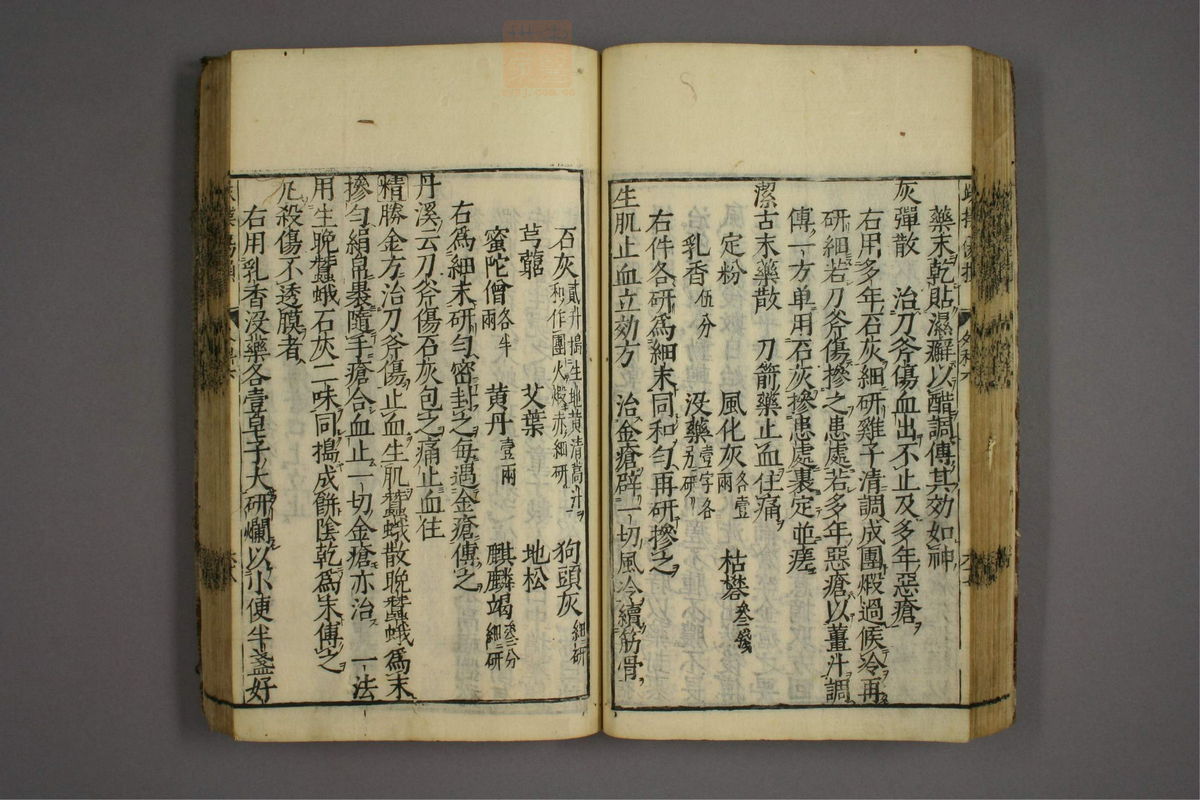 藥末乾貼濕癬以醋調傅其效如神
灰彈散　治刀斧傷血出不止及多年惡瘡
右用多年石灰細研雞子清調成團煅過候冷再
研細若刀斧傷摻之患處若多年惡瘡以薑汁調
傅一方单用石灰摻患處裹定並瘥
潔古末藥散　刀箭藥止血住痛
定粉　風化灰各壹兩　枯礬叁錢
乳香伍分　没藥壹字各另研
右件各研爲細末同和匀再研摻之
生肌止血立効方　治金瘡辟一切風冷續筋骨
石灰貳升搗生地黄清蒿汁和作團火煅赤細研　狗頭灰細研
芎藭　艾葉　地松
蜜陀僧各半兩　黄丹壹兩　麒麟竭叁分細研
右爲細末研匀密封之每遇金瘡傅之
丹溪云刀斧傷石灰包之痛止血住
精勝金方治刀斧傷止血生肌蠶蛾散晚蠶蛾爲末
摻匀絹帛裹隨手瘡合血止一切金瘡亦治　一法
用生晚蠶蛾石灰二味同搗成餅陰乾爲末傅之
凡殺傷不透膜者
右用乳香没藥各壹皂子大研爛以小便半盞好